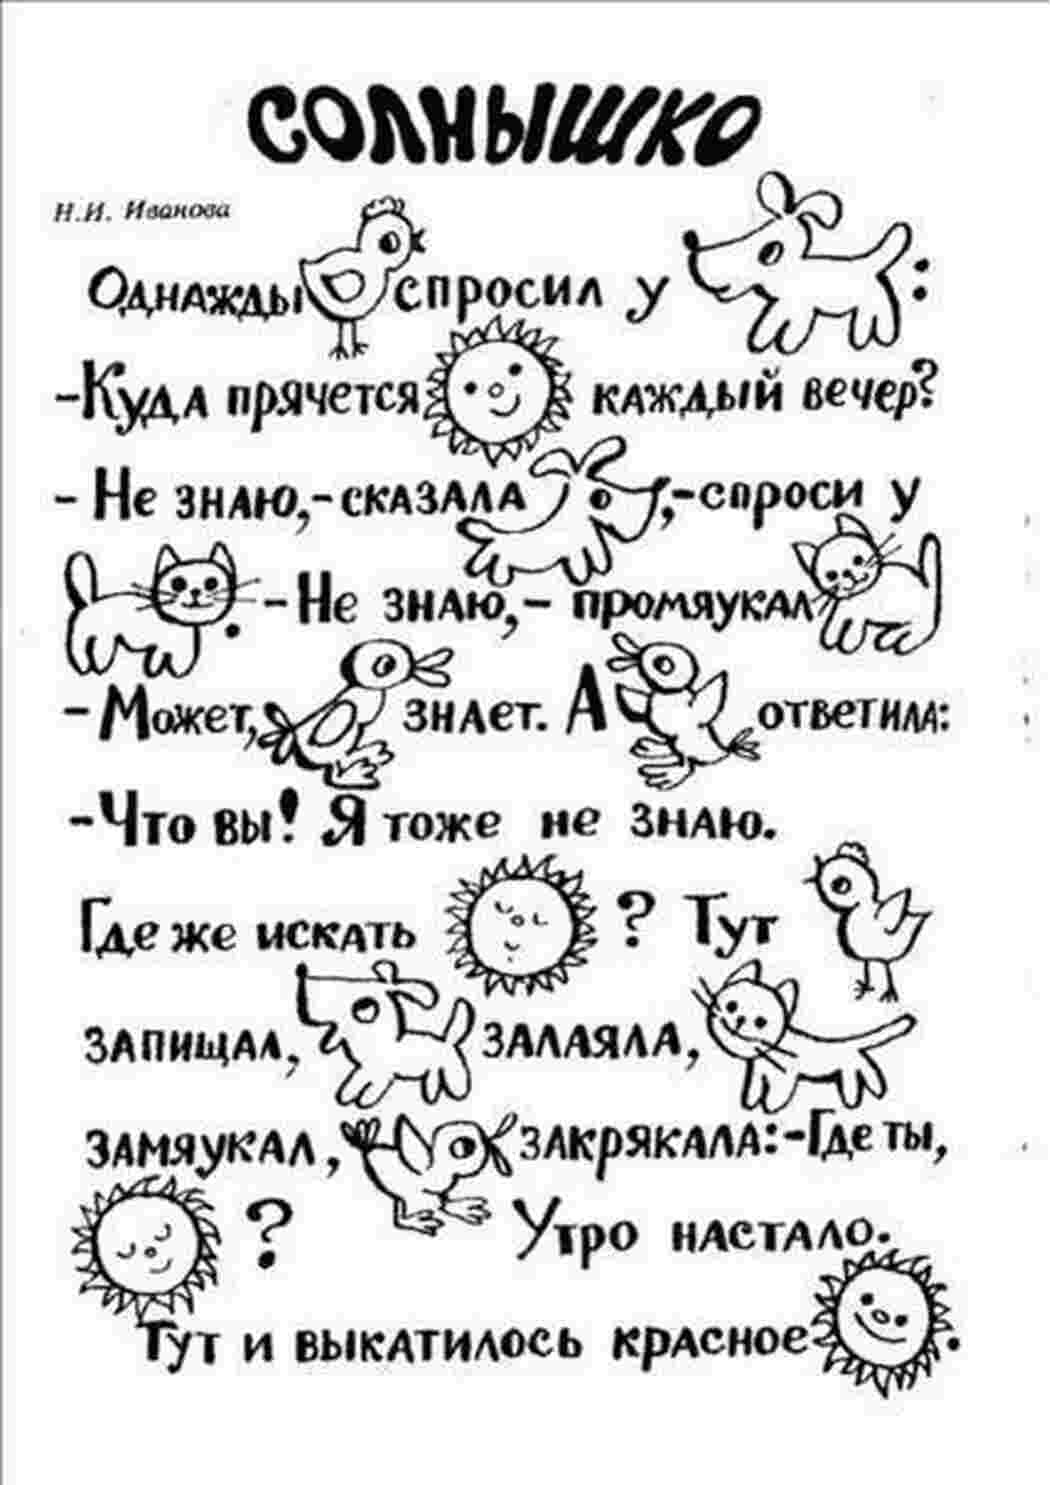 СОЛНЫШКО
Н.И. Иванова
Однажды спросил у :
-Куда прячется каждый вечер?
- Не знаю,-сказала ,-спроси у
. -Не знаю,- промяукал
-Может, знает. А ответила:
-Что вы! Я тоже не знаю.
Где же искать ? Тут
запищал, залаяла,
замяукал, закрякала:-Где ты,
? Утро настало.
Тут и выкатилось красное .